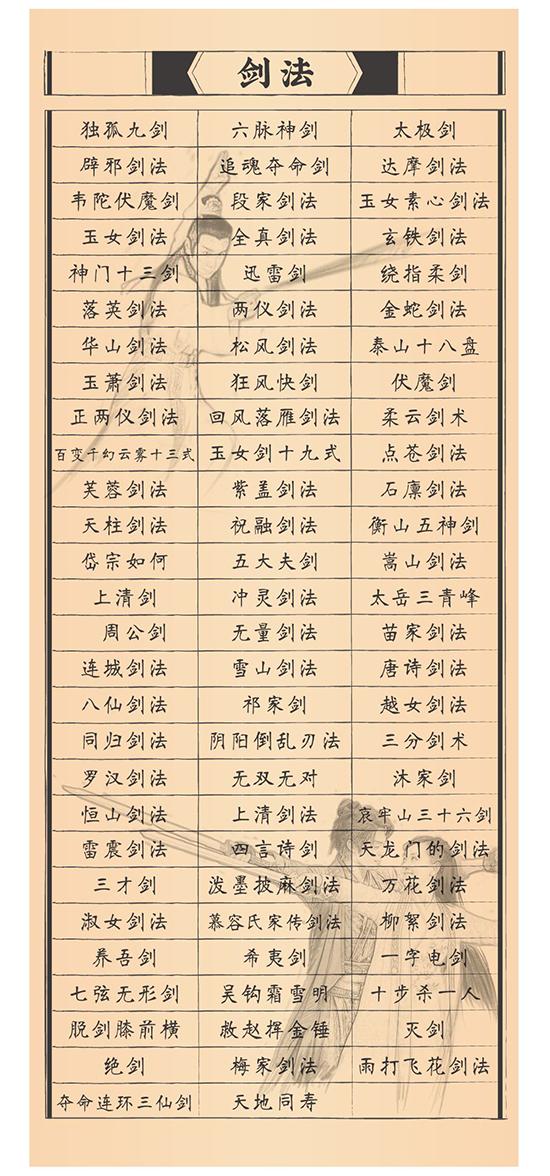 剑法
独孤九剑 六脉神剑 太极剑
辟邪剑法 追魂夺命剑 达摩剑法
韦陀伏魔剑 段家剑法 玉女素心剑法
玉女剑法 全真剑法 玄铁剑法
神门十三剑 迅雷剑 绕指柔剑
落英剑法 两仪剑法 金蛇剑法
华山剑法 松风剑法 泰山十八盘
玉萧剑法 狂风快剑 伏魔剑
正两仪剑法 回风落雁剑法 柔云剑术
百变千幻云雾十三式 玉女剑十九式 点苍剑法
芙蓉剑法 紫盖剑法 石廪剑法
天柱剑法 祝融剑法 衡山五神剑
岱宗如何 五大夫剑 嵩山剑法
上清剑 冲灵剑法 太岳三青峰
周公剑 无量剑法 苗家剑法
连城剑法 雪山剑法 唐诗剑法
八仙剑法 祁家剑 越女剑法
同归剑法 阴阳倒乱刃法 三分剑术
罗汉剑法 无双无对 沐家剑
恒山剑法 上清剑法 哀牢山三十六剑
雷震剑法 四言诗剑 天龙门的剑法
三才剑 泼墨披麻剑法 万花剑法
淑女剑法 慕容氏家传剑法 柳絮剑法
养吾剑 希夷剑 一字电剑
七弦无形剑 吴钩霜雪明 十步杀一人
脱剑膝前横 救赵挥金锤 灭剑
绝剑 梅家剑法 雨打飞花剑法
夺命连环三仙剑 天地同寿